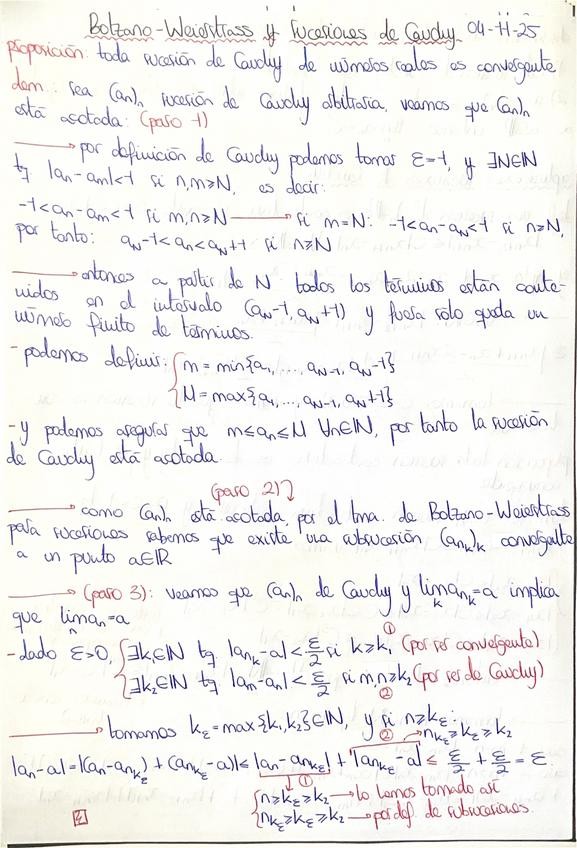 Bolzano-Weierstrass y sucesiones de Cauchy 04-11-25
proposición: toda sucesión de Cauchy de números reales es convergente
dem: sea (an)n sucesión de Cauchy arbitraria, veamos que (an)n
está acotada: (paso 1)
→ por definición de Cauchy podemos tomar ε=1, y ∃N∈ℕ
tq |an-am|<1 si n,m≥N, es decir:
-1<an-am<1 si m,n≥N → si m=N: -1<an-aN<1 si n≥N,
por tanto: aN-1<an<aN+1 si n≥N
→ entonces a partir de N todos los términos están conte-
nidos en el intervalo (aN-1, aN+1) y fuera sólo queda un
número finito de términos.
- podemos definir: { m = min{a1, ..., aN-1, aN-1}
M = max{a1, ..., aN-1, aN+1}
- y podemos asegurar que m≤an≤M ∀n∈ℕ, por tanto la sucesión
de Cauchy está acotada.
(paso 2)
→ como (an)n está acotada, por el tma. de Bolzano-Weierstrass
para sucesiones sabemos que existe una subsucesión (ank)k convergente
a un punto a∈ℝ
→ (paso 3): veamos que (an)n de Cauchy y lim k ank=a implica
que lim n an=a
- dado ε>0, { ∃k1∈ℕ tq |ank-a|<ε/2 si k≥k1 ① (por ser convergente)
∃k2∈ℕ tq |am-an|<ε/2 si m,n≥k2 ② (por ser de Cauchy)
→ tomamos kε=max{k1,k2}∈ℕ, y si n≥kε:
② → nkε≥kε≥k2
|an-a|=|(an-ankε)+(ankε-a)|≤|an-ankε|+|ankε-a|≤ ε/2 + ε/2 = ε.
①
{ n≥kε≥k2 → lo hemos tomado así
nkε≥kε≥k2 → por def. de subsucesiones.